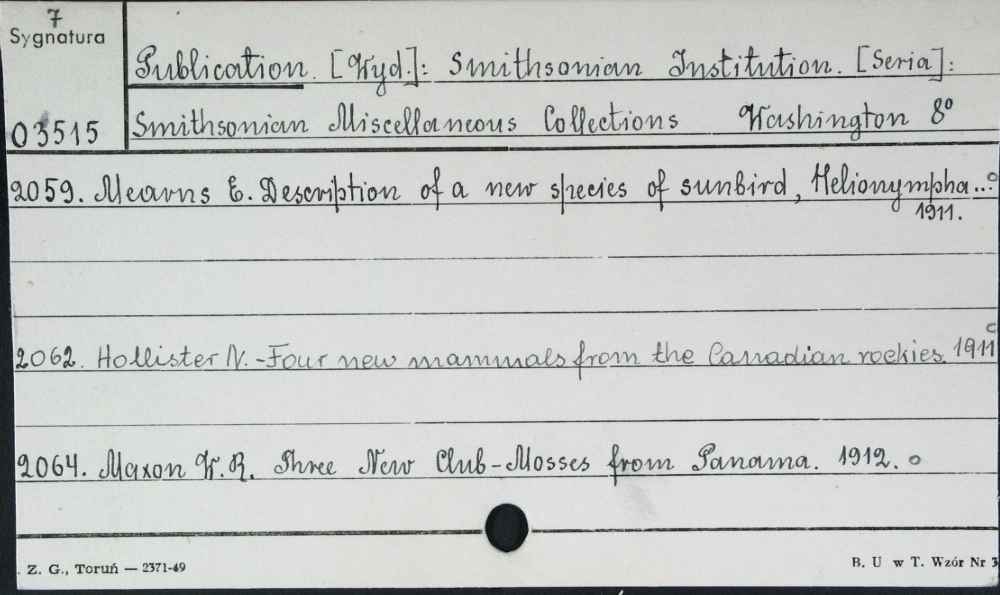 7
Sygnatura
Publication. [Wyd.]: Smithsonian Institution. [Seria]:
03515 Smithsonian Miscellaneous Collections Washington 8º
2059. Mearns E. Description of a new species of sunbird, Helionympha...
1911.
2062. Hollister N. - Four new mammals from the Canadian rockies. 1911
2064. Maxon W. R. Three New Club-Mosses from Panama. 1912.
Z. G., Toruń — 2371-49
B. U w T. Wzór Nr 3